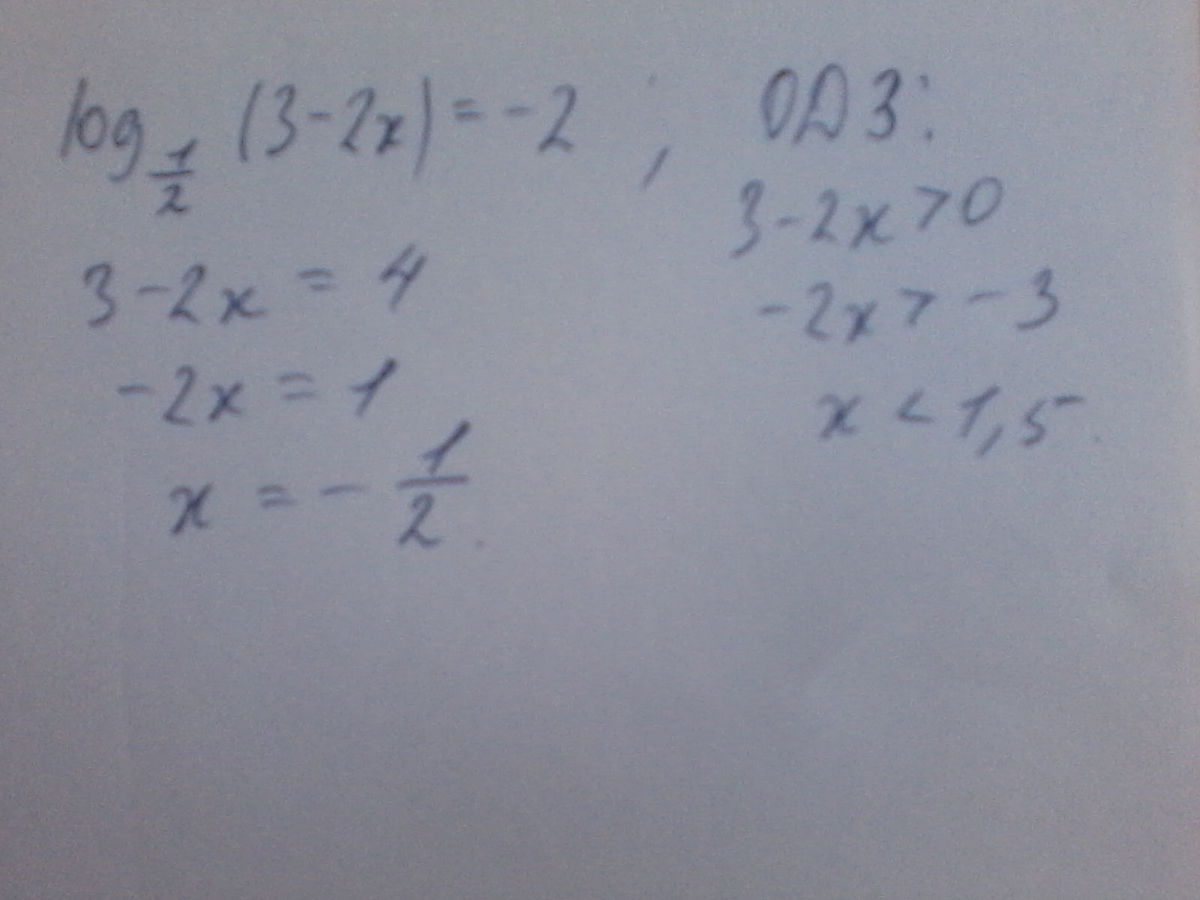 log_{1/2} (3-2x) = -2 ; ОДЗ:
3-2x>0
3-2x = 4
-2x > -3
-2x = 1
x < 1,5.
x = - 1/2.